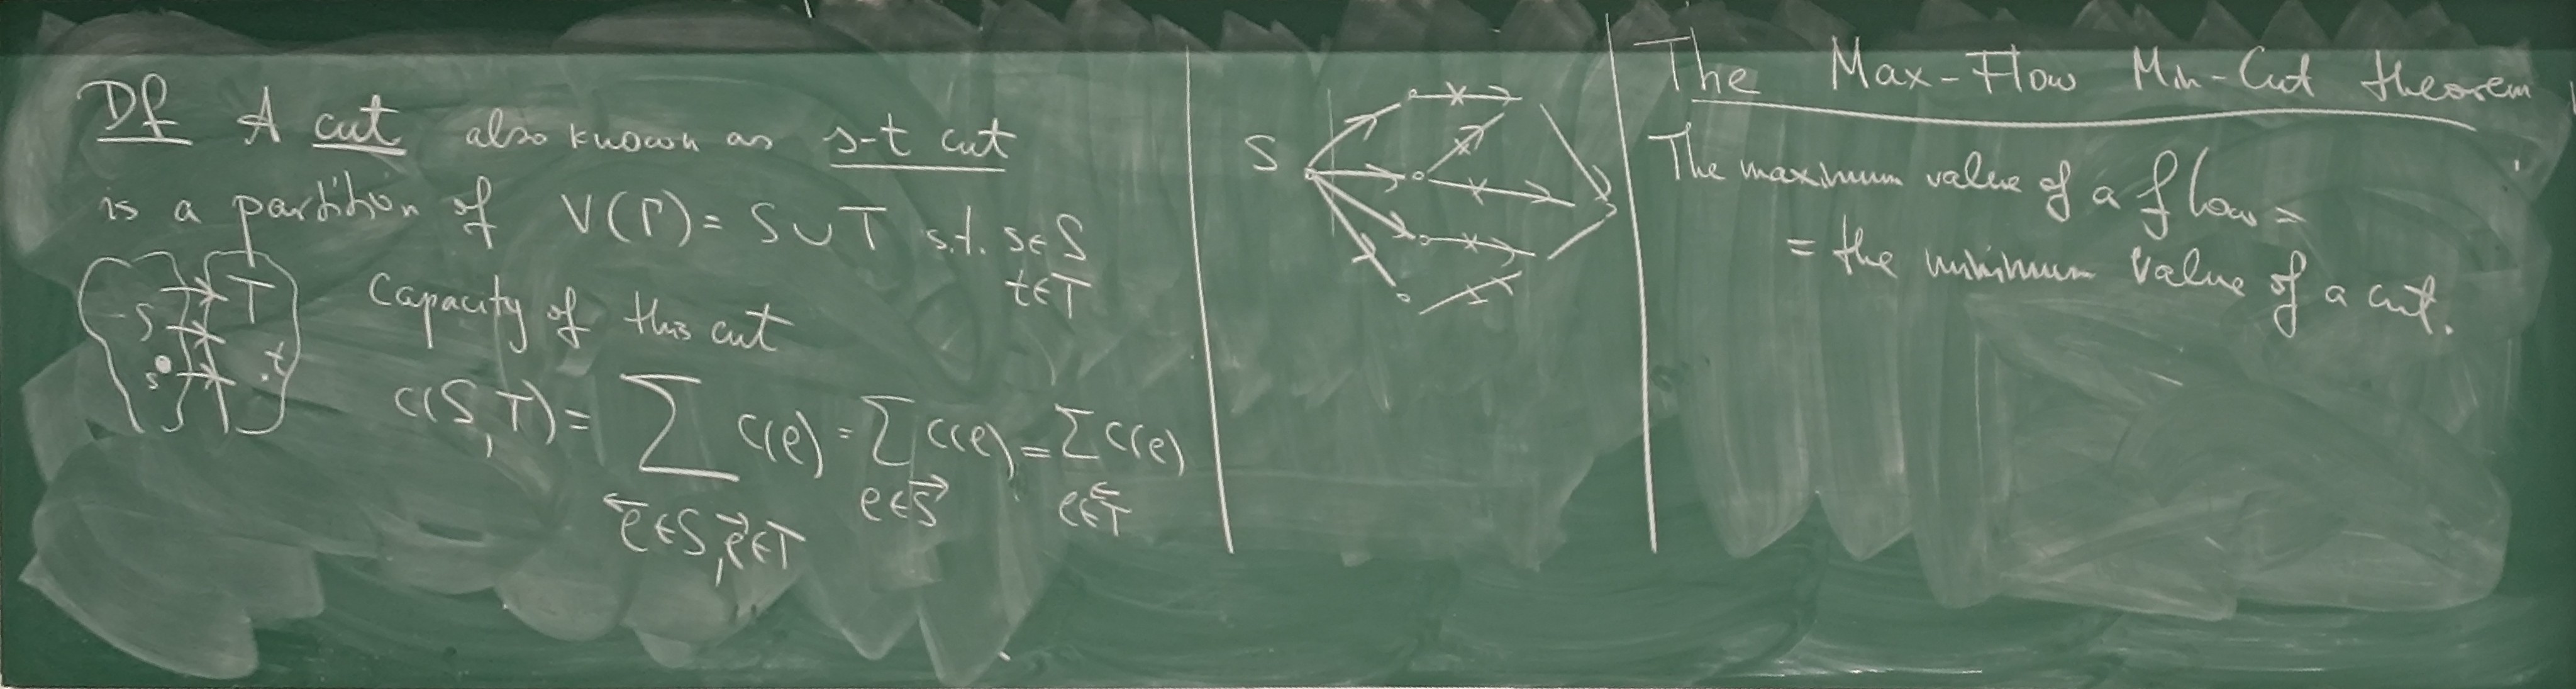 Df A cut also known as s-t cut
is a partition of V(Γ) = S ∪ T s.t. s∈S
t∈T
S T
s t
Capacity of this cut
c(S,T) = ∑ c(e) = ∑ c(e) = ∑ c(e)
e⃖∈S, e⃗∈T e∈S⃗ e∈T⃖
S
The Max-Flow Min-Cut theorem
The maximum value of a flow =
= the minimum value of a cut.